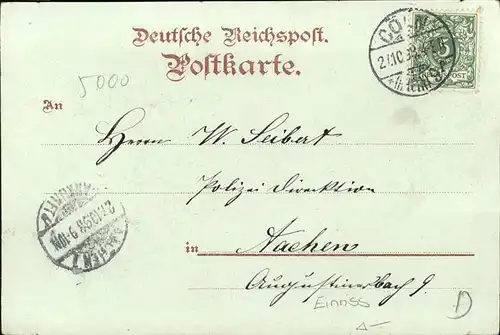 Deutsche Reichspost.
Postkarte.
5000
An
Herrn W. Seibert
Polizei Direktion
in Aachen
Augustinerbach 9.
Einnss
D